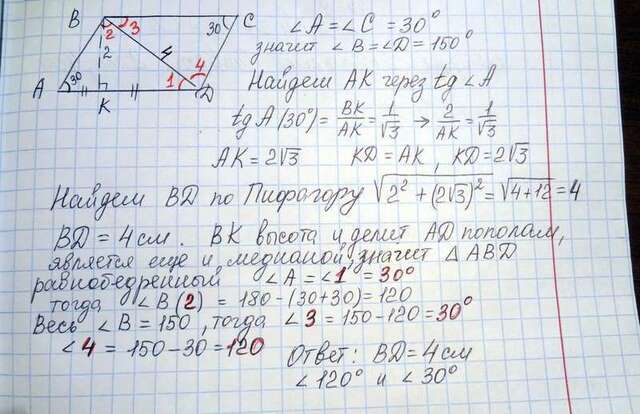 B 2 3 30 C
2 4 4
A 30 1 D
K
∠A = ∠C = 30°
значит ∠B = ∠D = 150°
Найдем АК через tg ∠A
tg A (30°) = BK/AK = 1/√3 → 2/AK = 1/√3
AK = 2√3 KD = AK, KD = 2√3
Найдем BD по Пифагору √(2² + (2√3)²) = √(4+12) = 4
BD = 4 см. BK высота и делит AD пополам,
является еще и медианой, значит △ ABD
равнобедренный ∠A = ∠1 = 30°
тогда ∠B(2) = 180 - (30+30) = 120
Весь ∠B = 150, тогда ∠3 = 150-120 = 30°
∠4 = 150-30 = 120 Ответ: BD = 4 см
∠120° и ∠30°